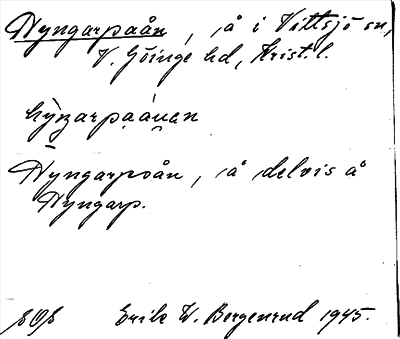 Nyngarpaån, å i Vittsjö sn,
V. Göinge hd, Krist. l.
Nyngarpaån, å delvis å
Nyngarp.
Erik W. Bergenrud 1945.